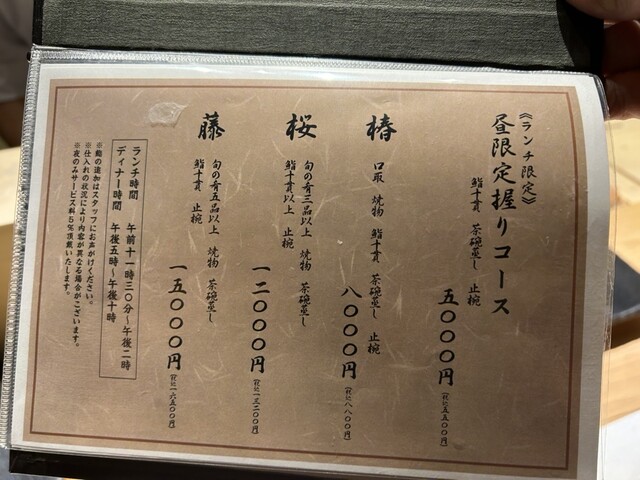 《ランチ限定》
昼限定握りコース
鮨十貫 茶碗蒸し 止椀
五〇〇〇円(税込五五〇〇円)
椿
口取 焼物 鮨十貫 茶碗蒸し 止椀
八〇〇〇円(税込八八〇〇円)
桜
旬の肴三品以上 焼物 茶碗蒸し
鮨十貫以上 止椀
一二〇〇〇円(税込一三二〇〇円)
藤
旬の肴五品以上 焼物 茶碗蒸し
鮨十貫 止椀
一五〇〇〇円(税込一六五〇〇円)
ランチ時間 午前十一時三〇分～午後二時
ディナー時間 午後五時～午後十時
※鮨の追加はスタッフにお声がけください。
※仕入れの状況により内容が異なる場合がございます。
※夜のみサービス料5%頂戴いたします。